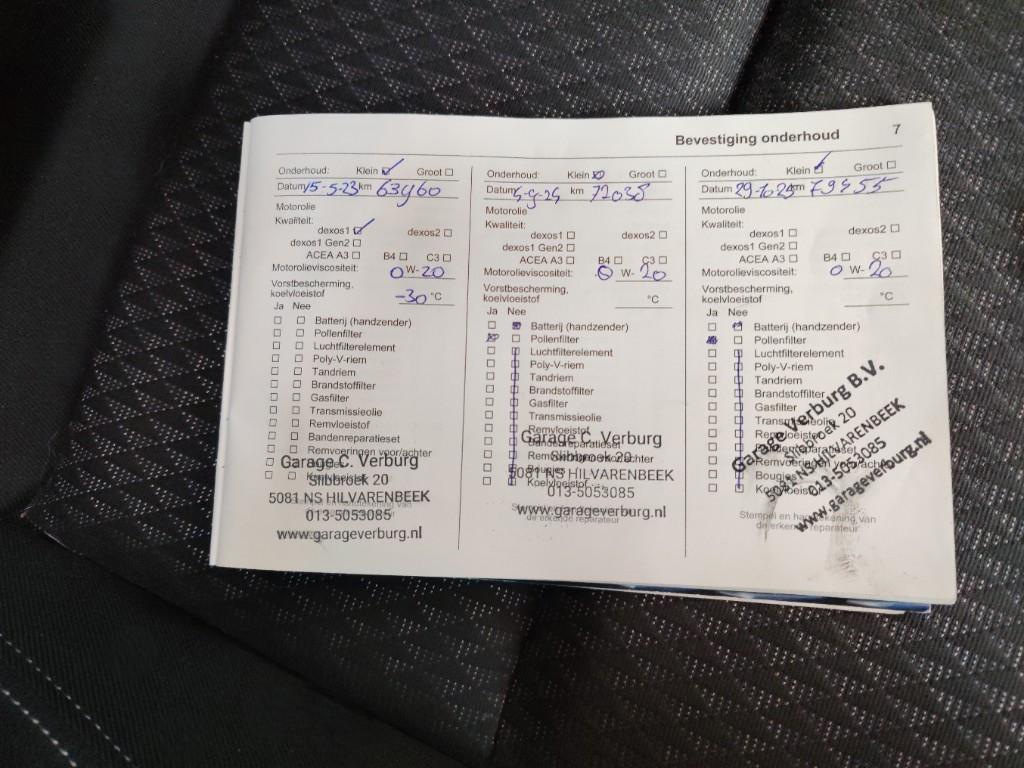 Bevestiging onderhoud 7
Onderhoud: Klein Groot
Datum 15-5-23 km 63460
Motorolie
Kwaliteit:
dexos1 dexos2
dexos1 Gen2
ACEA A3 B4 C3
Motorolieviscositeit: 0 W- 20
Vorstbescherming,
koelvloeistof -30 °C
Ja Nee
Batterij (handzender)
Pollenfilter
Luchtfilterelement
Poly-V-riem
Tandriem
Brandstoffilter
Gasfilter
Transmissieolie
Remvloeistof
Bandenreparatieset
Remvoeringen voor/achter
Garage C. Verburg
Slibbroek 20
5081 NS HILVARENBEEK
013-5053085
www.garageverburg.nl
Onderhoud: Klein Groot
Datum km 72038
Motorolie
Kwaliteit:
dexos1 dexos2
dexos1 Gen2
ACEA A3 B4 C3
Motorolieviscositeit: 0 W- 20
Vorstbescherming,
koelvloeistof °C
Ja Nee
Batterij (handzender)
Pollenfilter
Luchtfilterelement
Poly-V-riem
Tandriem
Brandstoffilter
Gasfilter
Transmissieolie
Remvloeistof
Bandenreparatieset
Garage C. Verburg
Slibbroek 20
Bougies
5081 NS HILVARENBEEK
Koelvloeistof
013-5053085
www.garageverburg.nl
de erkende reparateur
Onderhoud: Klein Groot
Datum km 79455
Motorolie
Kwaliteit:
dexos1 dexos2
dexos1 Gen2
ACEA A3 B4 C3
Motorolieviscositeit: 0 W- 20
Vorstbescherming,
koelvloeistof °C
Ja Nee
Batterij (handzender)
Pollenfilter
Luchtfilterelement
Poly-V-riem
Tandriem
Brandstoffilter
Gasfilter
Transmissieolie
Remvloeistof
Bandenreparatieset
Remvoeringen voor/achter
Bougies
Koelvloeistof
Garage Verburg B.V.
Slibroek 20
5081 NS HILVARENBEEK
013-5053085
www.garageverburg.nl
Stempel en handtekening van
de erkende reparateur